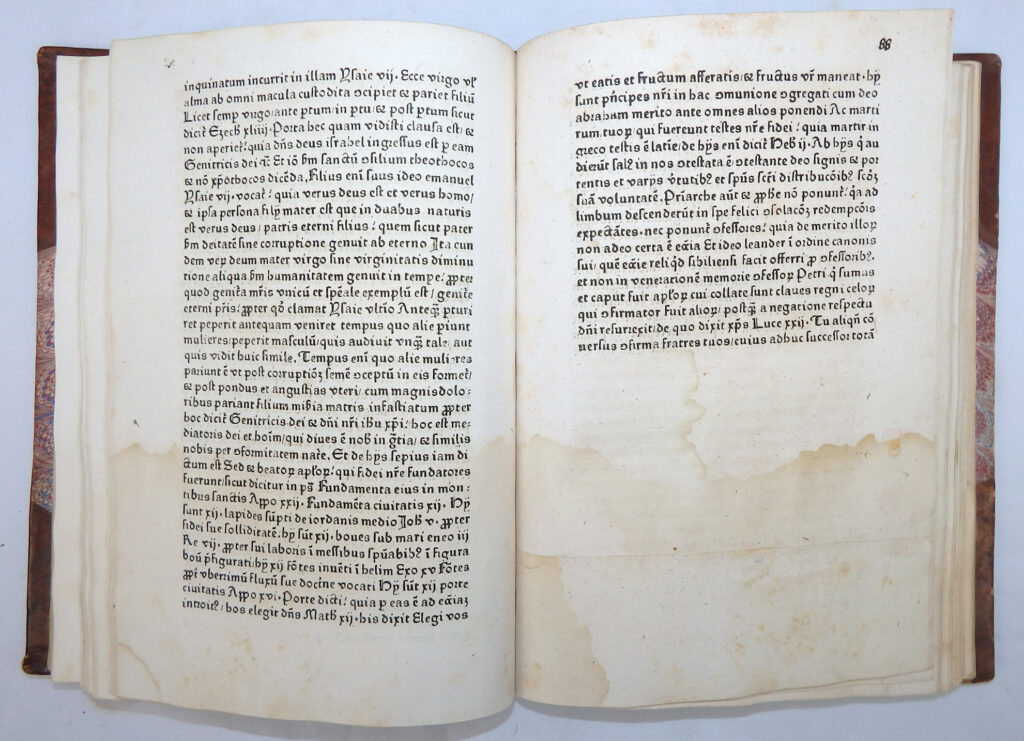 inquinatum incurrit in illam Ysaie vij. Ecce virgo vl'
alma ab omni macula custodita ꝯcipiet & pariet filiū
Licet semꝑ virgo/ante ꝑtum/in ꝑtu/& post ꝑtum sicut
dicit Ezech xliiij. Porta hec quam vidisti clausa est/&
non aperiet᷑/quia dn̄s deus israhel ingressus est ꝑ eam
Genitricis dei Et iō ẜm sanctū ꝯsilium theothocos
& nō xp̄othocos dicēda. Filius enī suus ideo emanuel
Ysaie vij. vocat᷑/ quia verus deus est et verus homo/
& ipsa persona filij mater est que in duabus naturis
est verus deus/ patris eterni filius/ quem sicut pater
ẜm deitatē sine corruptione genuit ab eterno Ita eun
dem veꝝ deum mater virgo sine virginitatis diminu
tione aliqua ẜm humanitatem genuit in tempe/ ꝓpter
quod genita mr̄is vnicū et spēale exemplū est/ genite
eterni pr̄is/ ꝓpter qd̄ clamat Ysaie vltīo Anteꝙ̄ ꝑturi
ret peperit antequam veniret tempus quo alie ꝑiunt
mulieres/peperit masculū/quis audiuit vnꝙ̄ tale/ aut
quis vidit huic simile. Tempus enī quo alie mulieres
pariunt ē vt post corruptiōꝫ semē ꝯceptū in eis formet᷑/
& post pondus et angustias vteri/ cum magnis dolo-
ribus pariant filium mihia matris infastiatum ꝓpter
hoc dicit᷑ Genitricis dei & dn̄i nr̄i ihu xp̄i/ hoc est me-
diatoris dei et hoīm/qui diues ē nob̄ in gr̄tia/ & similis
nobis per ꝯformitatem nat᷑e. Et de hijs sepius iam di
ctum est Sed & beatoꝝ apl'oꝝ/ qui fidei nr̄e fundatores
fuerunt/sicut dicitur in pꝫ Fundamenta eius in mon-
tibus sanctis Appo xxij. Fundamēta ciuitatis xij. Hij
sunt xij. lapides sūpti de iordanis medio Joh̄ v. ꝓpter
fidei sue solliditatē. hij sūt xij. boues sub mari eneo iij
Re vij. ꝓpter sui laboris ī messibus spūabibꝫ ī figura
boū p̄figurati/hij xij fōtes inuēti ī helim Exo xv Fōtes
ꝓpt̄ vberrimū fluxū sue docīne vocati Hij sūt xij porte
ciuitatis Appo xvi. Porte dicti/ quia ꝑ eas ē ad ecciaꝫ
introitꝫ/hos elegit dn̄s Math xij. his dixit Elegi vos
88
vt eatis et fructum afferatis/& fructus vr̄ maneat. hij
sunt pn̄cipes nr̄i in hac ꝯmunione ꝯgregati cum deo
abraham merito ante omnes alios ponendi Ac marti
rum tuoꝝ qui fuerunt testes nr̄e fidei/ quia martir in
greco testis ē latīe/ de hijs enī dicit Heb ij. Ab hijs q̄ au
dierūt salꝫ in nos ꝯtestata ē/ꝯtestante deo signis & por
tentis et varijs v̄tutibꝫ et spūs scī distribucōibꝫ ẜcōꝫ
suā voluntatē. Pr̄iarche aūt & ꝓphe nō ponunt᷑/q̄a ad
limbum descenderūt in spe felici ꝯsolacōꝫ redempcōis
expectātes. nec ponunt᷑ ꝯfessores/ quia de merito illoꝝ
non adeo certa ē eccīa Et ideo leander ī ordine canonis
sui/ quē eccīe reliq̄d sibiliensi facit offerri ꝓ ꝯfessoribꝫ.
et non in venerationē memorie ꝯfessoꝝ Petri q̄ sūmus
et caput fuit apl'oꝝ cui collate sunt claues regni celoꝝ
qui ꝯfirmator fuit alioꝝ/ postꝙ̄ a negatione respectu
dn̄i resurrexit/de quo dixit xp̄s Luce xxij. Tu aliqn̄ cō
uersus ꝯfirma fratres tuos/cuius adhuc successor totā